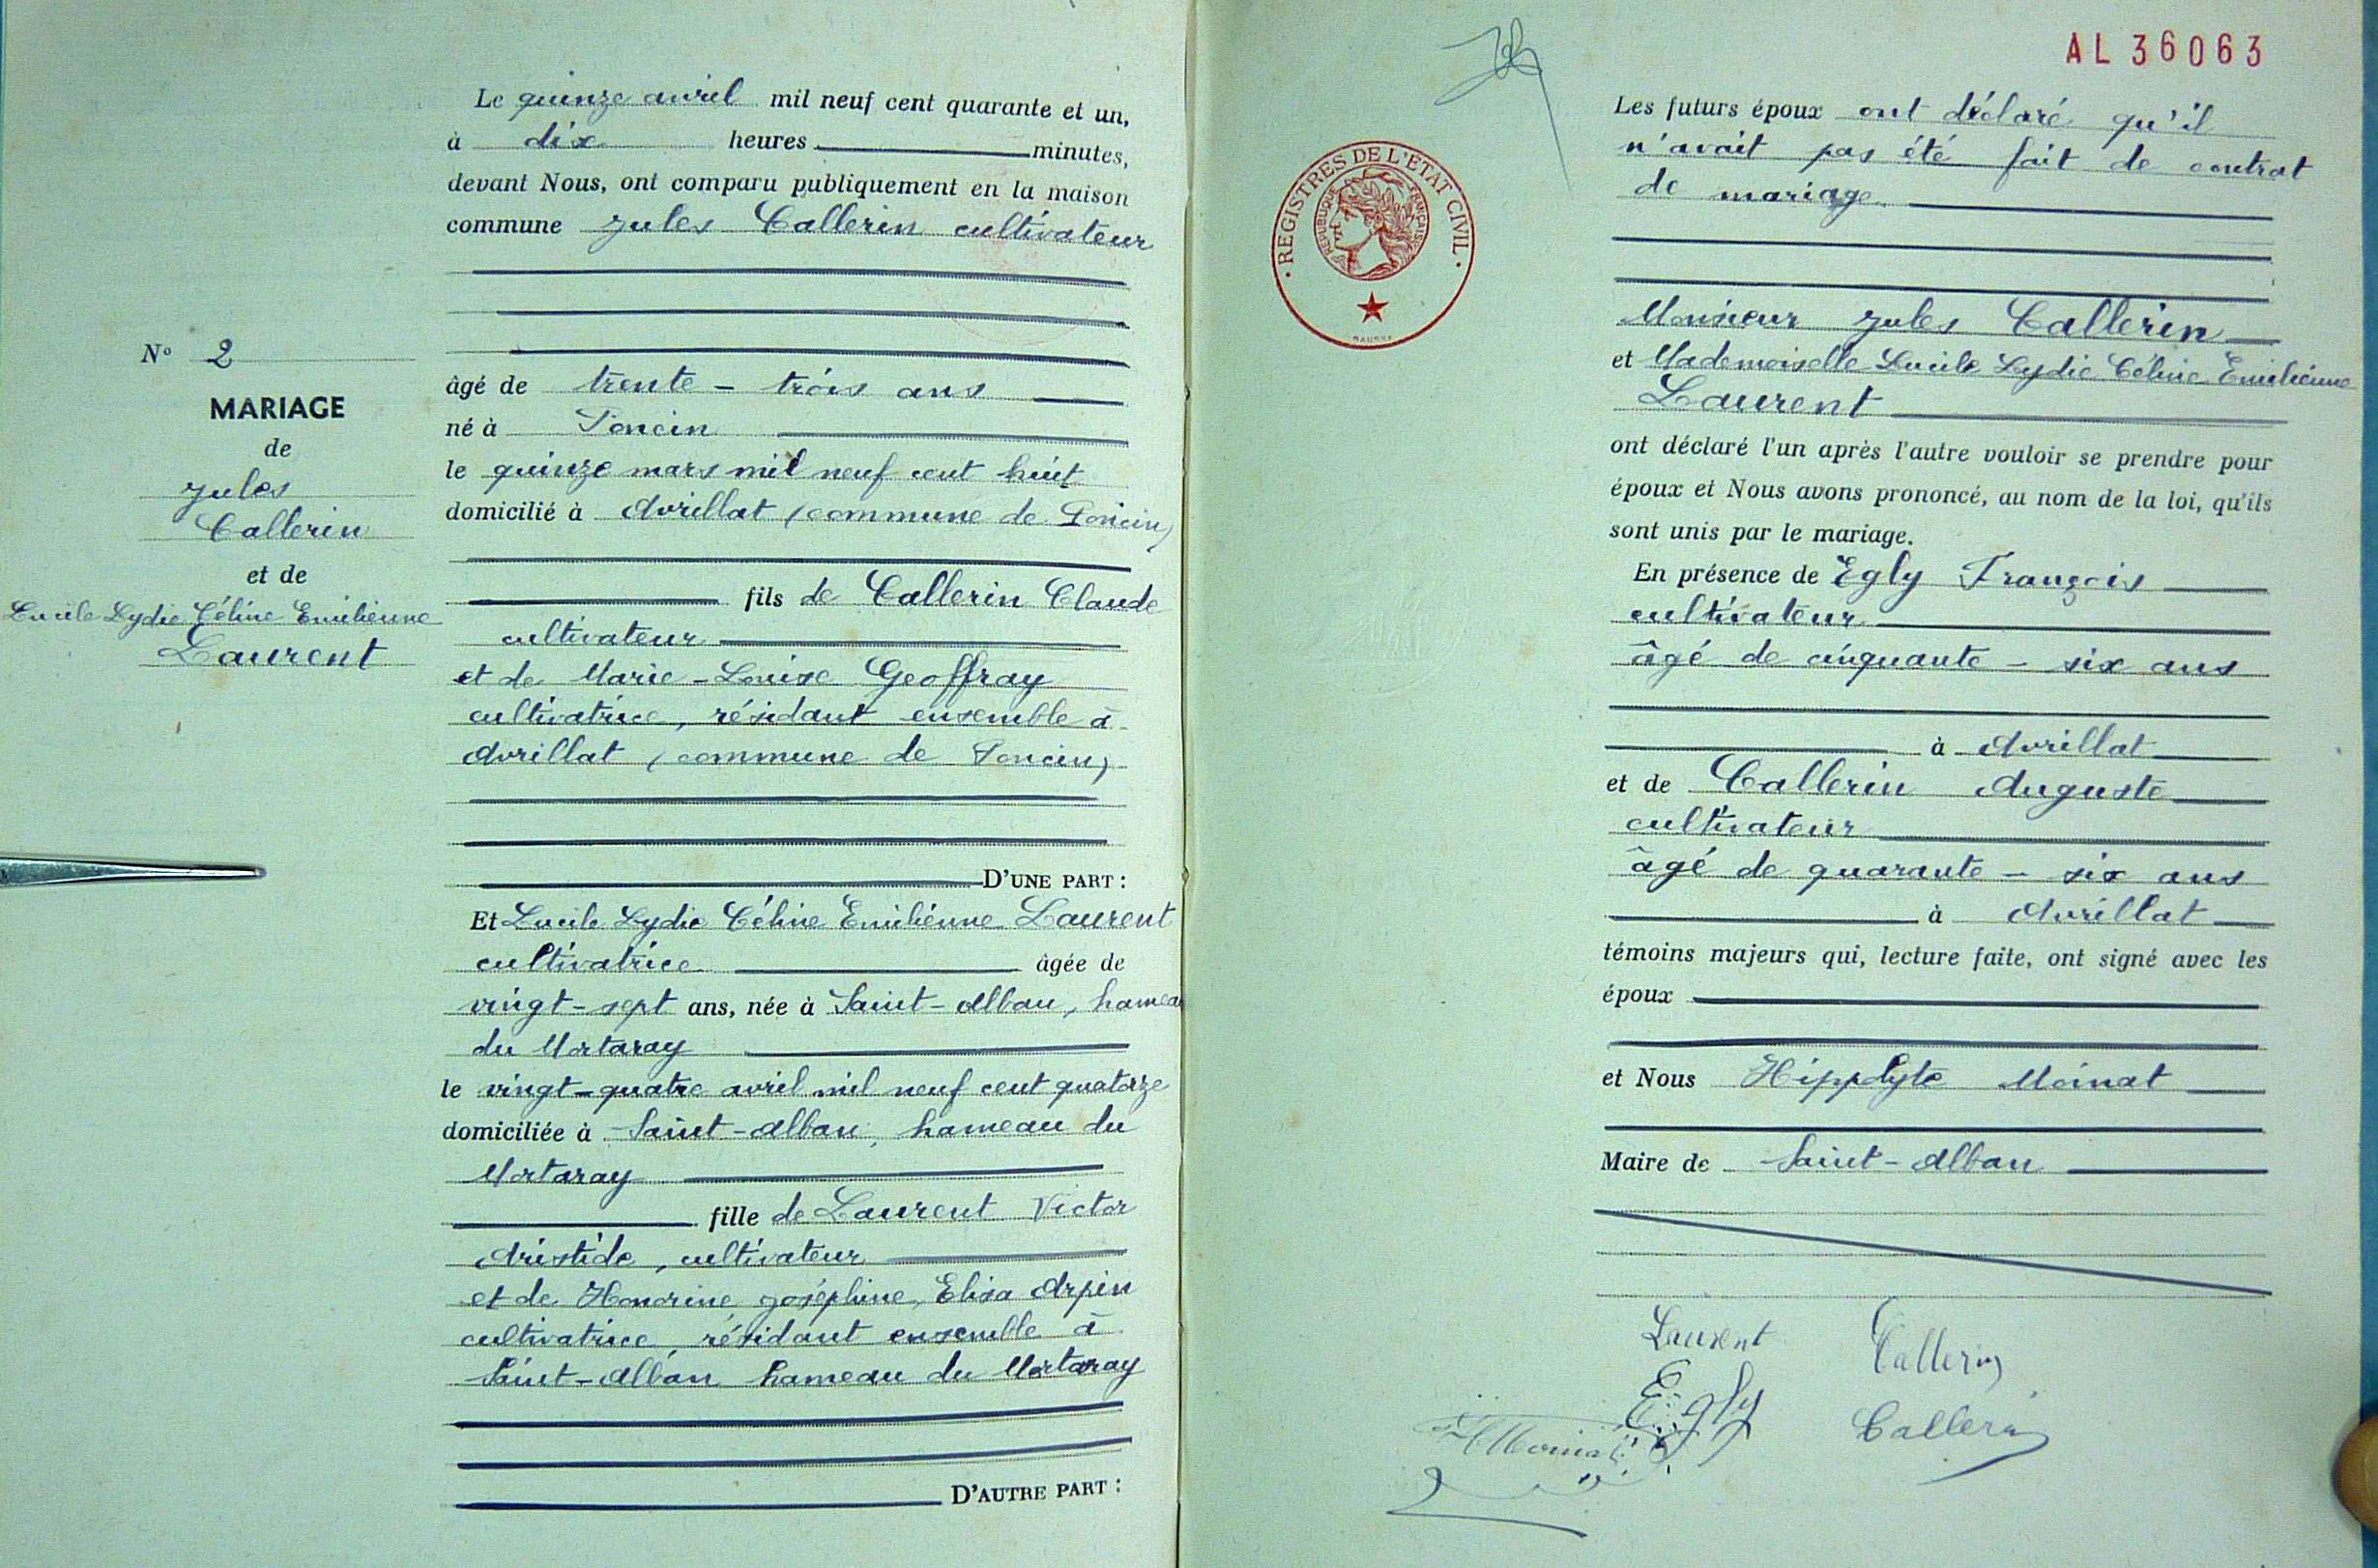 Le quinze avril mil neuf cent quarante et un,
à dix heures minutes,
devant Nous, ont comparu publiquement en la maison
commune Jules Callerin cultivateur
N° 2
MARIAGE
de
Jules
Callerin
et de
Lucile Lydie Céline Emiliénne
Laurent
âgé de trente - trois ans
né à Poncin
le quinze mars mil neuf cent huit
domicilié à Avrillat (commune de Poncin)
fils de Callerin Claude
cultivateur
et de Marie - Louise Geoffray
cultivatrice, résidant ensemble à
Avrillat (commune de Poncin)
D'UNE PART :
Et Lucile Lydie Céline Emiliénne Laurent
cultivatrice âgée de
vingt - sept ans, née à Saint - Alban, hameau
du Mortaray
le vingt - quatre avril mil neuf cent quatorze
domiciliée à Saint - Alban, hameau du
Mortaray
fille de Laurent Victor
Aristide, cultivateur
et de Honorine Joséphine, Elisa Arpin
cultivatrice, résidant ensemble à
Saint - Alban hameau du Mortaray
D'AUTRE PART :
AL 36063
REGISTRES DE L'ÉTAT CIVIL
RÉPUBLIQUE FRANÇAISE
Les futurs époux ont déclaré qu'il
n'avait pas été fait de contrat
de mariage.
Monsieur Jules Callerin
et Mademoiselle Lucile Lydie Céline Emiliénne
Laurent
ont déclaré l'un après l'autre vouloir se prendre pour
époux et Nous avons prononcé, au nom de la loi, qu'ils
sont unis par le mariage.
En présence de Egly François
cultivateur
âgé de cinquante - six ans
à Avrillat
et de Callerin Auguste
cultivateur
âgé de quarante - six ans
à Avrillat
témoins majeurs qui, lecture faite, ont signé avec les
époux
et Nous Hippolyte Moinat
Maire de Saint - Alban
Laurent Callerin
Egly Callerin
HMoinat